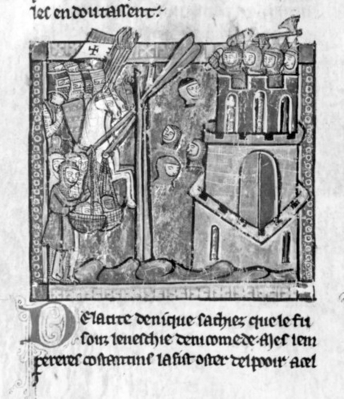 les en doutassent·
De la cite de nique sachiez que le fu
soiz leveschie de nicomede. Mes lem
pereres costantins la fist oster del pooir a cel